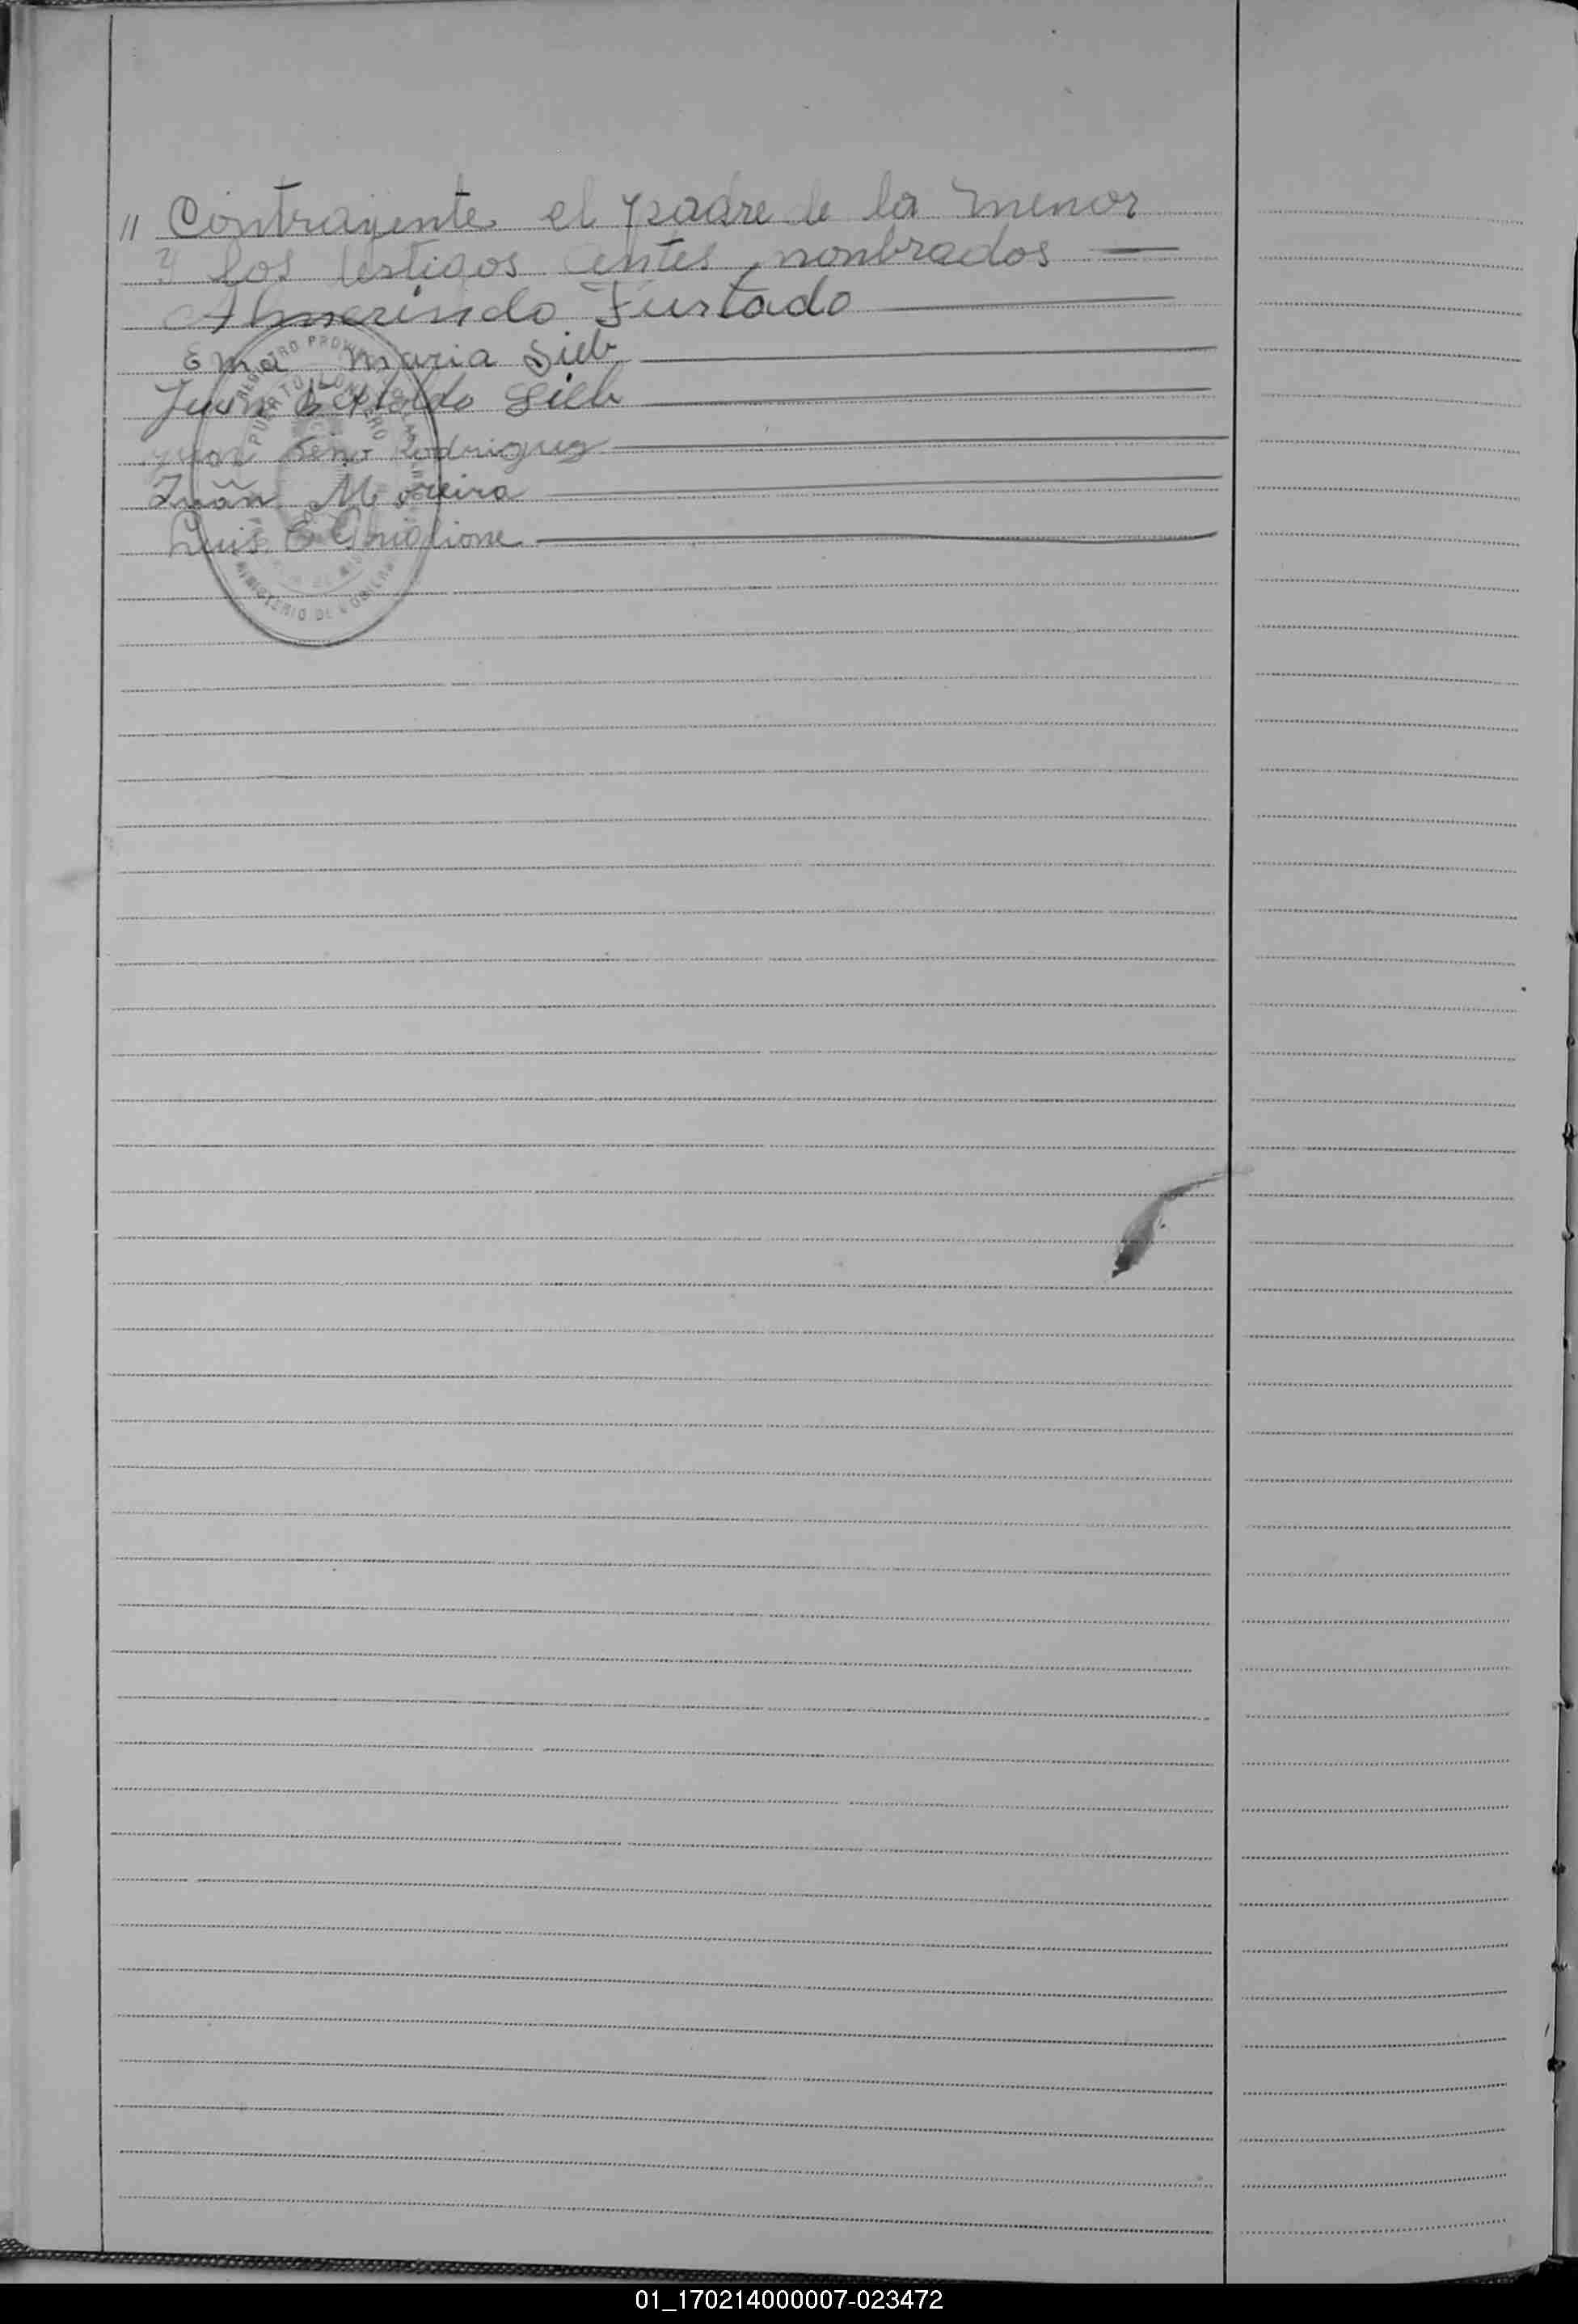 " Contrayente el padre de la menor
y los testigos antes nonbrados
Almerindo Furtado
Ema Maria Sieb
Juan Sieb
Rodriguez
Juan Moreira
Luis E
REGISTRO PROVIN
PUERTO LONDERO
MINISTERIO DE GOBIERNO
01_170214000007-023472